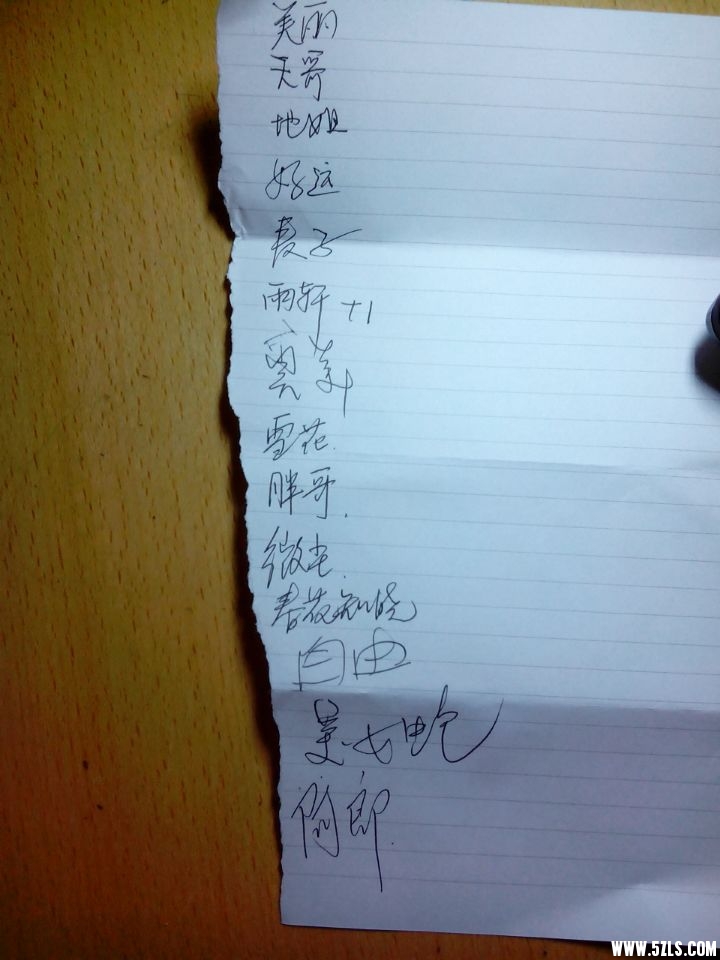 美丽
天哥
地姐
好运
麦子
雨轩 +1
雪花.
胖哥.
微尘.
春花知晓
自由
美女蛇
WWW.5ZLS.COM